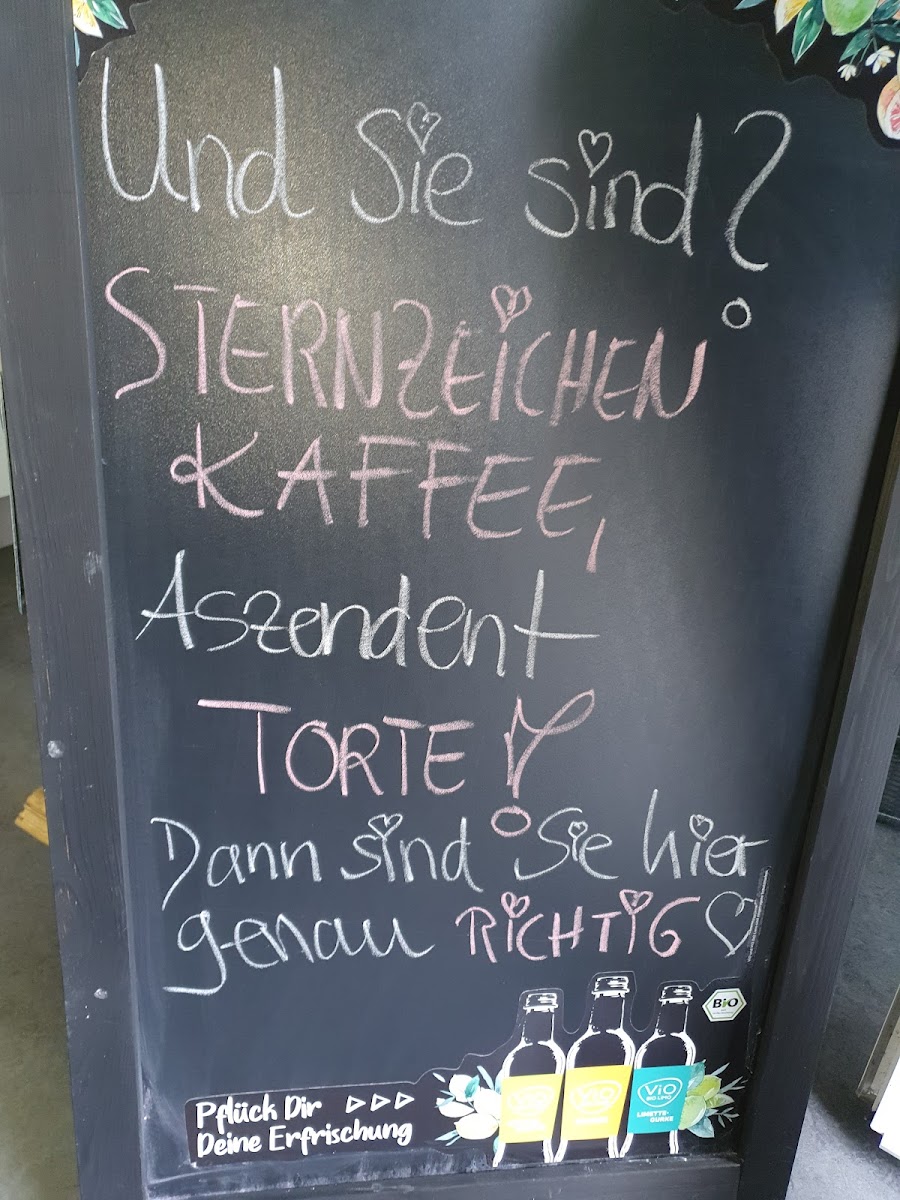 Und Sie sind?
STERNZEICHEN
KAFFEE,
Aszendent
TORTE!
Dann sind Sie hier
genau RICHTIG
BIO
ViO
ViO
ViO
BIO LIMO
LIMETTE-
GURKE
Pflück Dir
Deine Erfrischung